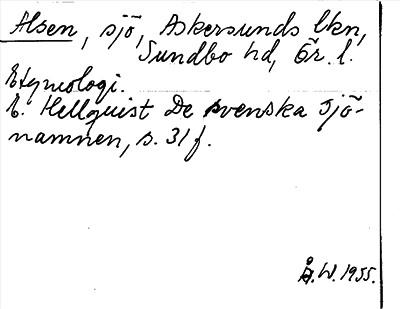 Alsen, sjö, Askersunds lkn,
Sundbo hd, Ör. l.
Etymologi.
E. Hellquist De svenska sjö-
namnen, s. 31 f.
Å.W. 1955.